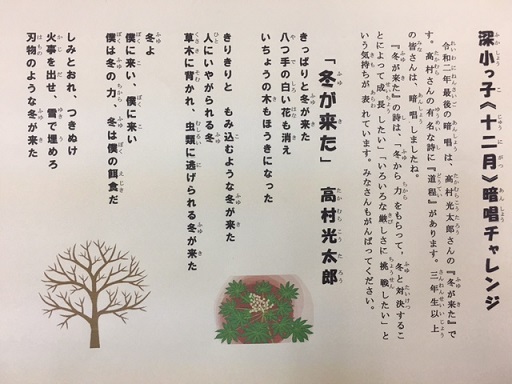 深小っ子《十二月》暗唱チャレンジ
令和二年最後の暗唱は、高村光太郎さんの『冬が来た』で
す。高村さんの有名な詩に『道程』があります。三年生以上
の皆さんは、暗唱しましたね。
『冬が来た』の詩は、「冬から力をもらって、冬と対決するこ
とによって成長したい」「いろいろな厳しさに挑戦したい」と
いう気持ちが表れています。みなさんもがんばってください。
「冬が来た」 高村光太郎
きっぱりと冬が来た
八つ手の白い花も消え
いちょうの木もほうきになった
きりきりと もみ込むような冬が来た
人にいやがられる冬
草木に背かれ、虫類に逃げられる冬が来た
冬よ
僕に来い、僕に来い
僕は冬の力、冬は僕の餌食だ
しみとおれ、つきぬけ
火事を出せ、雪で埋めろ
刃物のような冬が来た